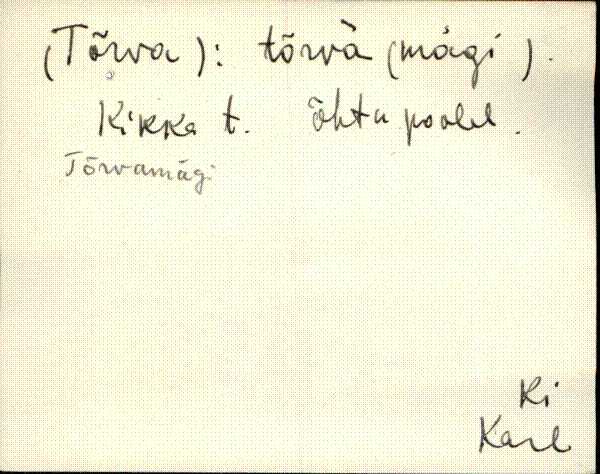 (Tõrva): tõrvà (mägi).
Kikka t. õhtu poolel.
Tõrvamägi
Ki
Karl